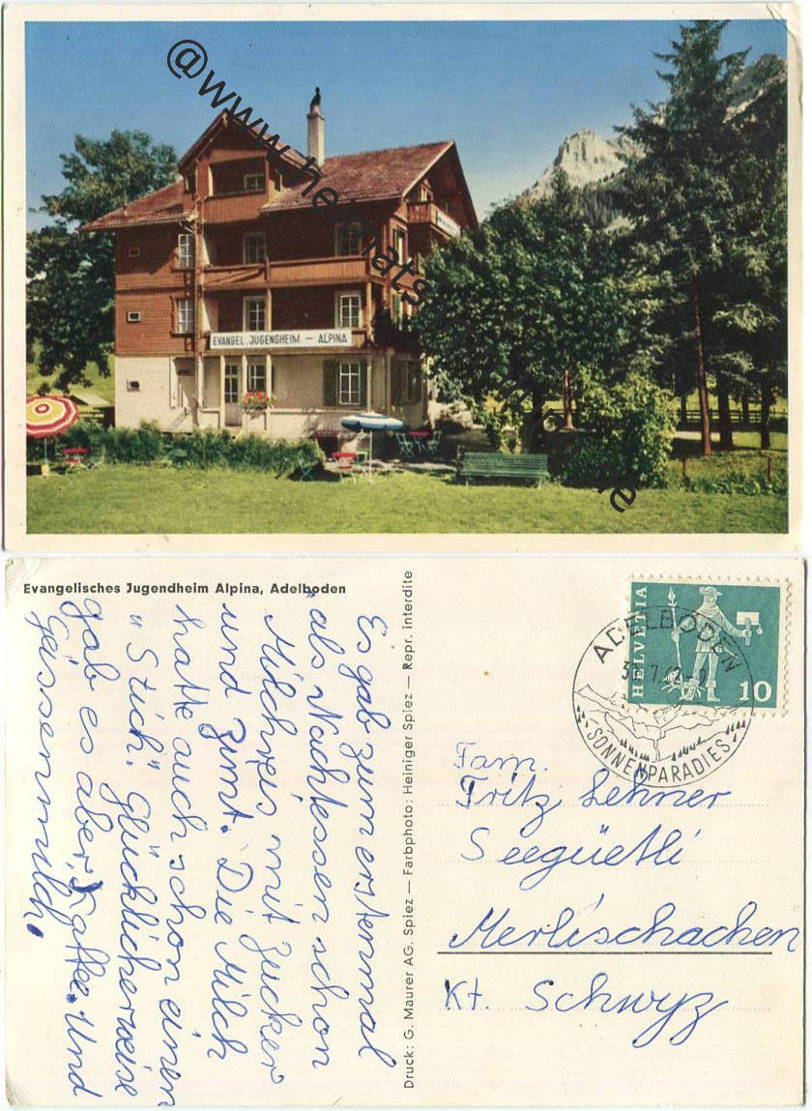 @www.heimats
e
EVANGEL. JUGENGHEIM – ALPINA
Evangelisches Jugendheim Alpina, Adelboden
Es gab zum erstenmal
als Nachtessen schon
Milchreis mit Zucker
und Zimt. Die Milch
hatte auch schon einen
"Stich". Glücklicherweise
gab es aber Kaffee. Und
Geissenmilch.
Druck: G. Maurer AG. Spiez — Farbphoto: Heiniger Spiez — Repr. interdite
HELVETIA
10
ADELBODEN
SONNENPARADIES
Fam.
Fritz Lehner
Seegüetli
Merlischachen
Kt. Schwyz